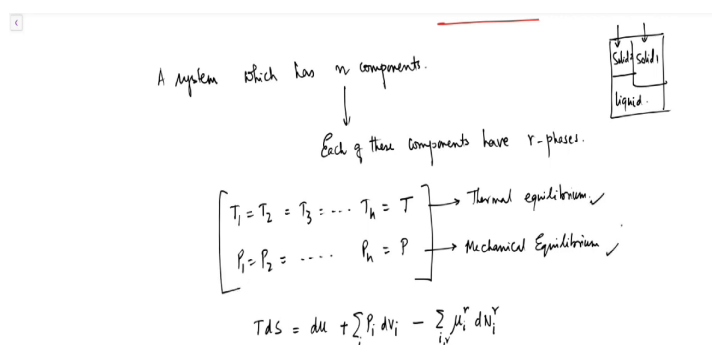 A system which has n components.
Solid2 Solid1
liquid.
Each of these components have r-phases.
T₁ = T₂ = T₃ = ... Tₙ = T → Thermal equilibrium ✓
P₁ = P₂ = .... Pₙ = P → Mechanical Equilibrium ✓
TdS = du + Σᵢ Pᵢ dvᵢ - Σᵢ,ᵣ μᵢʳ dNᵢʳ